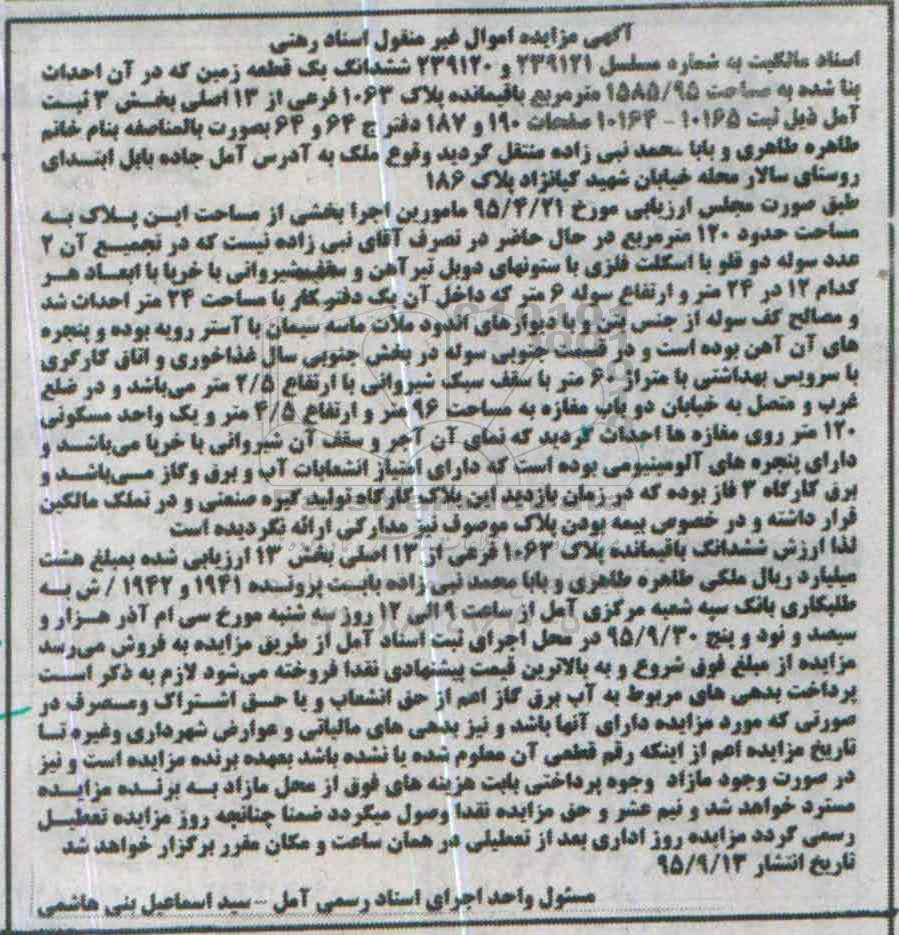 آگهی مزایده اموال غیر منقول اسناد رهنی
اسناد مالکیت به شماره مسلسل ۲۳۹۱۲۱ و ۲۳۹۱۲۰ ششدانگ یک قطعه زمین که در آن احداث
بنا شده به مساحت ۱۵۸۵/۹۵ مترمربع باقیمانده پلاک ۱۰۶۳ فرعی از ۱۳ اصلی بخش ۳ ثبت
آمل ذیل ثبت ۱۰۱۶۵ - ۱۰۱۶۴ صفحات ۱۹۰ و ۱۸۷ دفتر ج ۶۴ و ۶۴ بصورت بالمناصفه بنام خانم
طاهره طاهری و بابا محمد نبی زاده منتقل گردید وقوع ملک به آدرس آمل جاده بابل ابتدای
روستای سالار محله خیابان شهید کیانژاد پلاک ۱۸۶
طبق صورت مجلس ارزیابی مورخ ۹۵/۴/۲۱ مامورین اجرا بخشی از مساحت این پلاک به
مساحت حدود ۱۲۰ مترمربع در حال حاضر در تصرف آقای نبی زاده نیست که در تجمیع آن ۲
عدد سوله دو قلو با اسکلت فلزی با ستونهای دوبل تیرآهن و سقف شیروانی با خرپا با ابعاد هر
کدام ۱۲ در ۲۴ متر و ارتفاع سوله ۶ متر که داخل آن یک دفتر کار با مساحت ۲۴ متر احداث شد
و مصالح کف سوله از جنس بتن و با دیوارهای اندود ملات ماسه سیمان با آستر رویه بوده و پنجره
های آن آهن بوده است و در قسمت جنوبی سوله در بخش جنوبی سال غذاخوری و اتاق کارگری
با سرویس بهداشتی با متراژ ۶۰ متر با سقف سبک شیروانی با ارتفاع ۲/۵ متر می‌باشد و در ضلع
غرب و متصل به خیابان دو باب مغازه به مساحت ۹۶ متر و ارتفاع ۴/۵ متر و یک واحد مسکونی
۱۲۰ متر روی مغازه ها احداث گردید که نمای آن آجر و سقف آن شیروانی با خرپا می‌باشد و
دارای پنجره های آلومینیومی بوده است که دارای امتیاز انشعابات آب و برق وگاز می‌باشد و
برق کارگاه ۳ فاز بوده که در زمان بازدید این پلاک کارگاه تولید گیره صنعتی و در تملک مالکین
قرار داشته و در خصوص بیمه بودن پلاک موصوف نیز مدارکی ارائه نگردیده است
لذا ارزش ششدانگ باقیمانده پلاک ۱۰۶۳ فرعی از ۱۳ اصلی بخش ۱۳ ارزیابی شده بمبلغ هشت
میلیارد ریال ملکی طاهره طاهری و بابا محمد نبی زاده بابت پرونده ۱۹۴۱ و ۱۹۴۲ / ش به
طلبکاری بانک سپه شعبه مرکزی آمل از ساعت ۹ الی ۱۲ روز سه شنبه مورخ سی ام آذر هزار و
سیصد و نود و پنج ۹۵/۹/۳۰ در محل اجرای ثبت اسناد آمل از طریق مزایده به فروش می‌رسد
مزایده از مبلغ فوق شروع و به بالاترین قیمت پیشنهادی نقدا فروخته می‌شود لازم به ذکر است
پرداخت بدهی های مربوط به آب برق گاز اعم از حق انشعاب و یا حق اشتراک ومصرف در
صورتی که مورد مزایده دارای آنها باشد و نیز بدهی های مالیاتی و عوارض شهرداری وغیره تا
تاریخ مزایده اعم از اینکه رقم قطعی آن معلوم شده یا نشده باشد بعهده برنده مزایده است و نیز
در صورت وجود مازاد وجوه پرداختی بابت هزینه های فوق از محل مازاد به برنده مزایده
مسترد خواهد شد و نیم عشر و حق مزایده نقدا وصول میگردد ضمنا چنانچه روز مزایده تعطیل
رسمی گردد مزایده روز اداری بعد از تعطیلی در همان ساعت و مکان مقرر برگزار خواهد شد
تاریخ انتشار ۹۵/۹/۱۳
مسئول واحد اجرای اسناد رسمی آمل - سید اسماعیل بنی هاشمی